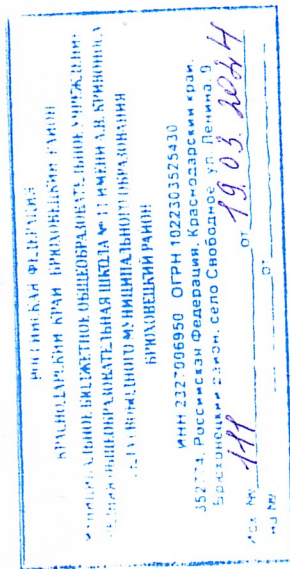 РОССИЙСКАЯ ФЕДЕРАЦИЯ
КРАСНОДАРСКИЙ КРАЙ БРЮХОВЕЦКИЙ РАЙОН
МУНИЦИПАЛЬНОЕ БЮДЖЕТНОЕ ОБЩЕОБРАЗОВАТЕЛЬНОЕ УЧРЕЖДЕНИЕ
СРЕДНЯЯ ОБЩЕОБРАЗОВАТЕЛЬНАЯ ШКОЛА № 11 ИМЕНИ А.В. КРИВОНОСА
СЕЛА СВОБОДНОГО МУНИЦИПАЛЬНОГО ОБРАЗОВАНИЯ
БРЮХОВЕЦКИЙ РАЙОН
ИНН 2327006950 ОГРН 1022303525430
Российская Федерация, Краснодарский край,
Брюховецкий район, село Свободное, ул. Ленина, 9
Исх. № 111 от 19.03.2024
на № от